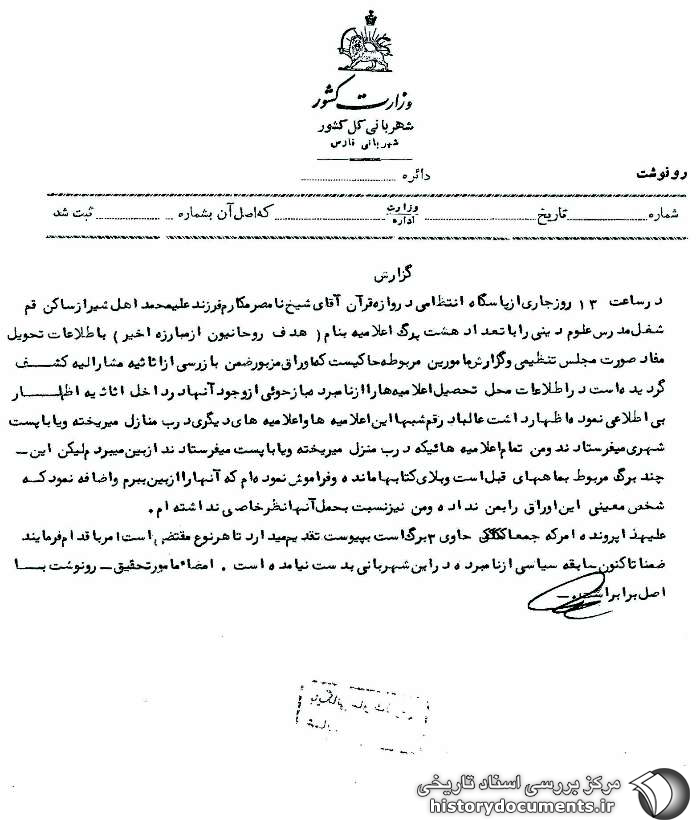 وزارت کشور
شهربانی کل کشور
شهربانی فارس
رونوشت
دائره
شماره تاریخ وزارت اداره که اصل آن بشماره ثبت شد
گزارش
در ساعت ۱۳ روز جاری از پاسگاه انتظامی دروازه قرآن آقای شیخ ناصر مکارم فرزند علیمحمد اهل شیراز ساکن قم
شغل مدرس علوم دینی را با تعداد هشت برگ اعلامیه بنام (هدف روحانیون از مبارزه اخیر) باطلاعات تحویل
مفاد صورت مجلس تنظیمی و گزارش مامورین مربوطه حاکیست که اوراق مزبور ضمن بازرسی از اثاثیه مشارالیه کشف
گردیده است در اطلاعات محل تحصیل اعلامیه ها را از نامبرده بازجوئی از وجود آنها در داخل اثاثیه اظهار
بی اطلاعی نموده اظهار داشت غالبا در قم شبها این اعلامیه ها و اعلامیه های دیگری درب منازل میریخته و یا با پست
شهری میفرستادند و من تمام اعلامیه هائیکه درب منزل میریخته و یا با پست میفرستادند از بین میبردم لیکن این -
چند برگ مربوط بماههای قبل است و بلای کتابها مانده و فراموش نموده ام که آنها را از بین ببرم و اضافه نمود که
شخص معینی این اوراق را بمن نداده و من نیز نسبت بحمل آنها نظر خاصی نداشته ام.
علیهذا پرونده امر که جمعا حاوی ۳ برگ است بپیوست تقدیم میدارد تا هر نوع مقتضی است امر باقدام فرمایند
ضمنا تاکنون سابقه سیاسی از نامبرده در این شهربانی بدست نیامده است. امضاء مامور تحقیق - رونوشت با
اصل برابر است -
مرکز بررسی اسناد تاریخی
historydocuments.ir